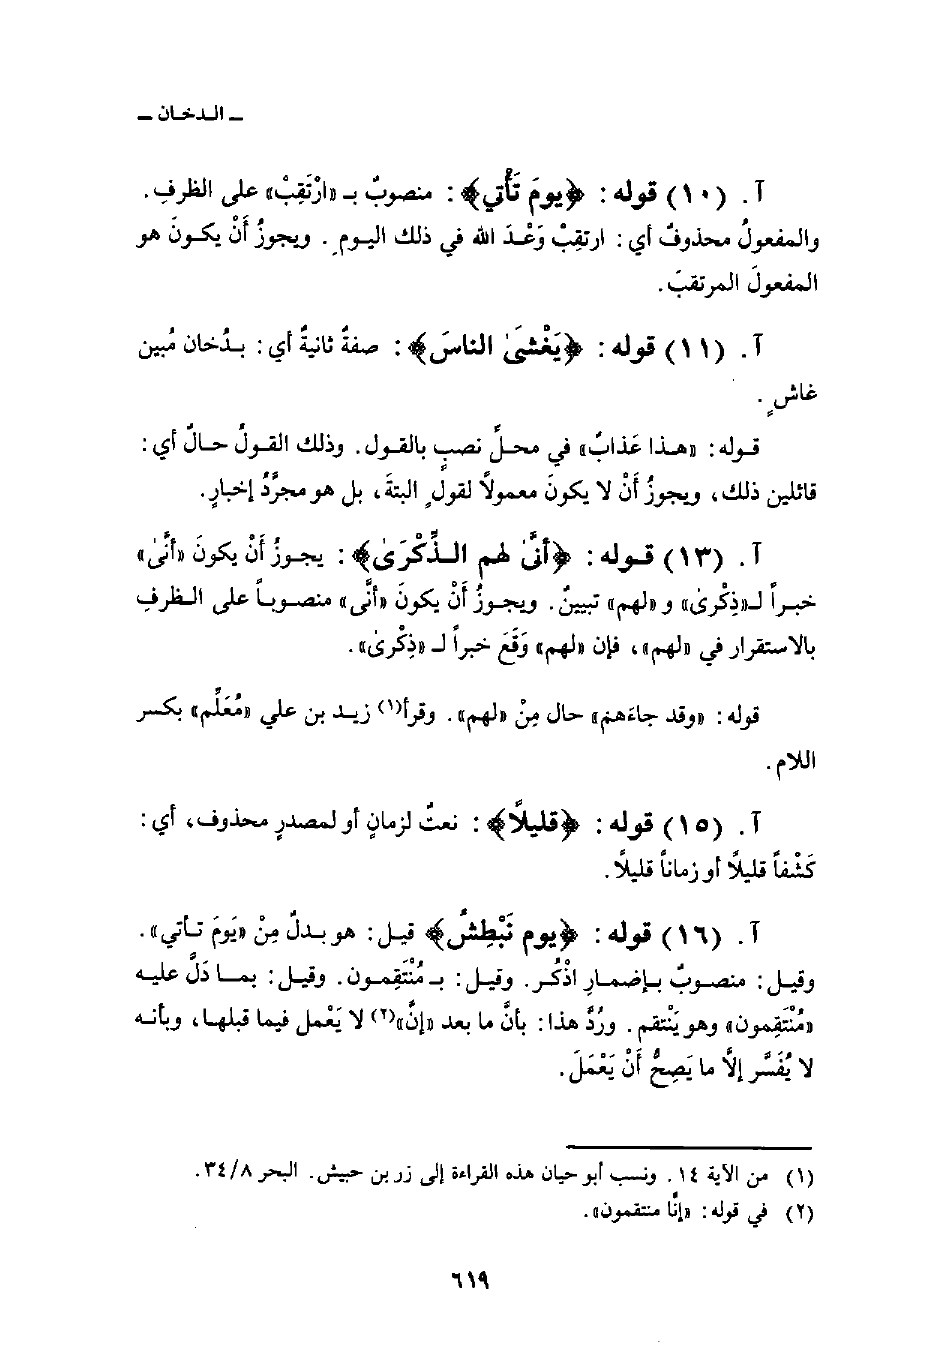 ـ الـدخـان ـ
آ. (١٠) قوله: ﴿يومَ تَأْتي﴾: منصوبٌ بـ «ارْتَقِبْ» على الظرفِ.
والمفعولُ محذوفٌ أي: ارتقِبْ وَعْـدَ الله في ذلك اليـومِ. ويجوزُ أَنْ يكـونَ هو
المفعولَ المرتقبَ.
آ. (١١) قوله: ﴿يَغْشىٰ الناسَ﴾: صفةٌ ثانيةٌ أي: بـدُخان مُبين
غاشٍ.
قـوله: «هـذا عَذابٌ» في محـلِّ نصبٍ بالقـول. وذلك القـولُ حـالٌ أي:
قائلين ذلك، ويجوزُ أَنْ لا يكونَ معمولاً لقولٍ البتةَ، بل هو مجرَّدُ إخبارٍ.
آ. (١٣) قـوله: ﴿أنَّىٰ لهم الـذِّكْرَىٰ﴾: يجـوزُ أَنْ يكونَ «أنَّىٰ»
خبـراً لـ«ذِكْرىٰ» و «لهم» تبيينٌ. ويجـوزُ أَنْ يكونَ «أنَّى» منصـوبـاً على الـظرفِ
بالاستقرار في «لهم»، فإن «لهم» وَقَعَ خبراً لـ «ذِكْرىٰ».
قوله: «وقد جاءَهم» حال مِنْ «لهم». وقرأ(١) زيـد بن علي «مُعَلِّم» بكسر
اللام.
آ. (١٥) قوله: ﴿قليلاً﴾: نعتٌ لزمانٍ أو لمصدرٍ محذوف، أي:
كَشْفاً قليلاً أو زماناً قليلاً.
آ. (١٦) قوله: ﴿يوم نَبْطِشُ﴾ قيـل: هو بـدلٌ مِنْ «يَومَ تـأتي».
وقيـل: منصـوبٌ بـإضمـارِ اذْكُـر. وقيـل: بـ مُنْتَقِمـون. وقيـل: بمـا دَلَّ عليـه
«مُنْتَقِمون» وهو يَنْتقم. ورُدَّ هذا: بأنَّ ما بعد «إنَّ»(٢) لا يَعْمل فيما قبلهـا، وبأنـه
لا يُفَسَّر إلاَّ ما يَصِحُّ أَنْ يَعْمَلَ.
(١) من الآية ١٤. ونسب أبو حيان هذه القراءة إلى زر بن حبيش. البحر ٣٤/٨.
(٢) في قوله: «إنَّا منتقمون».
٦١٩